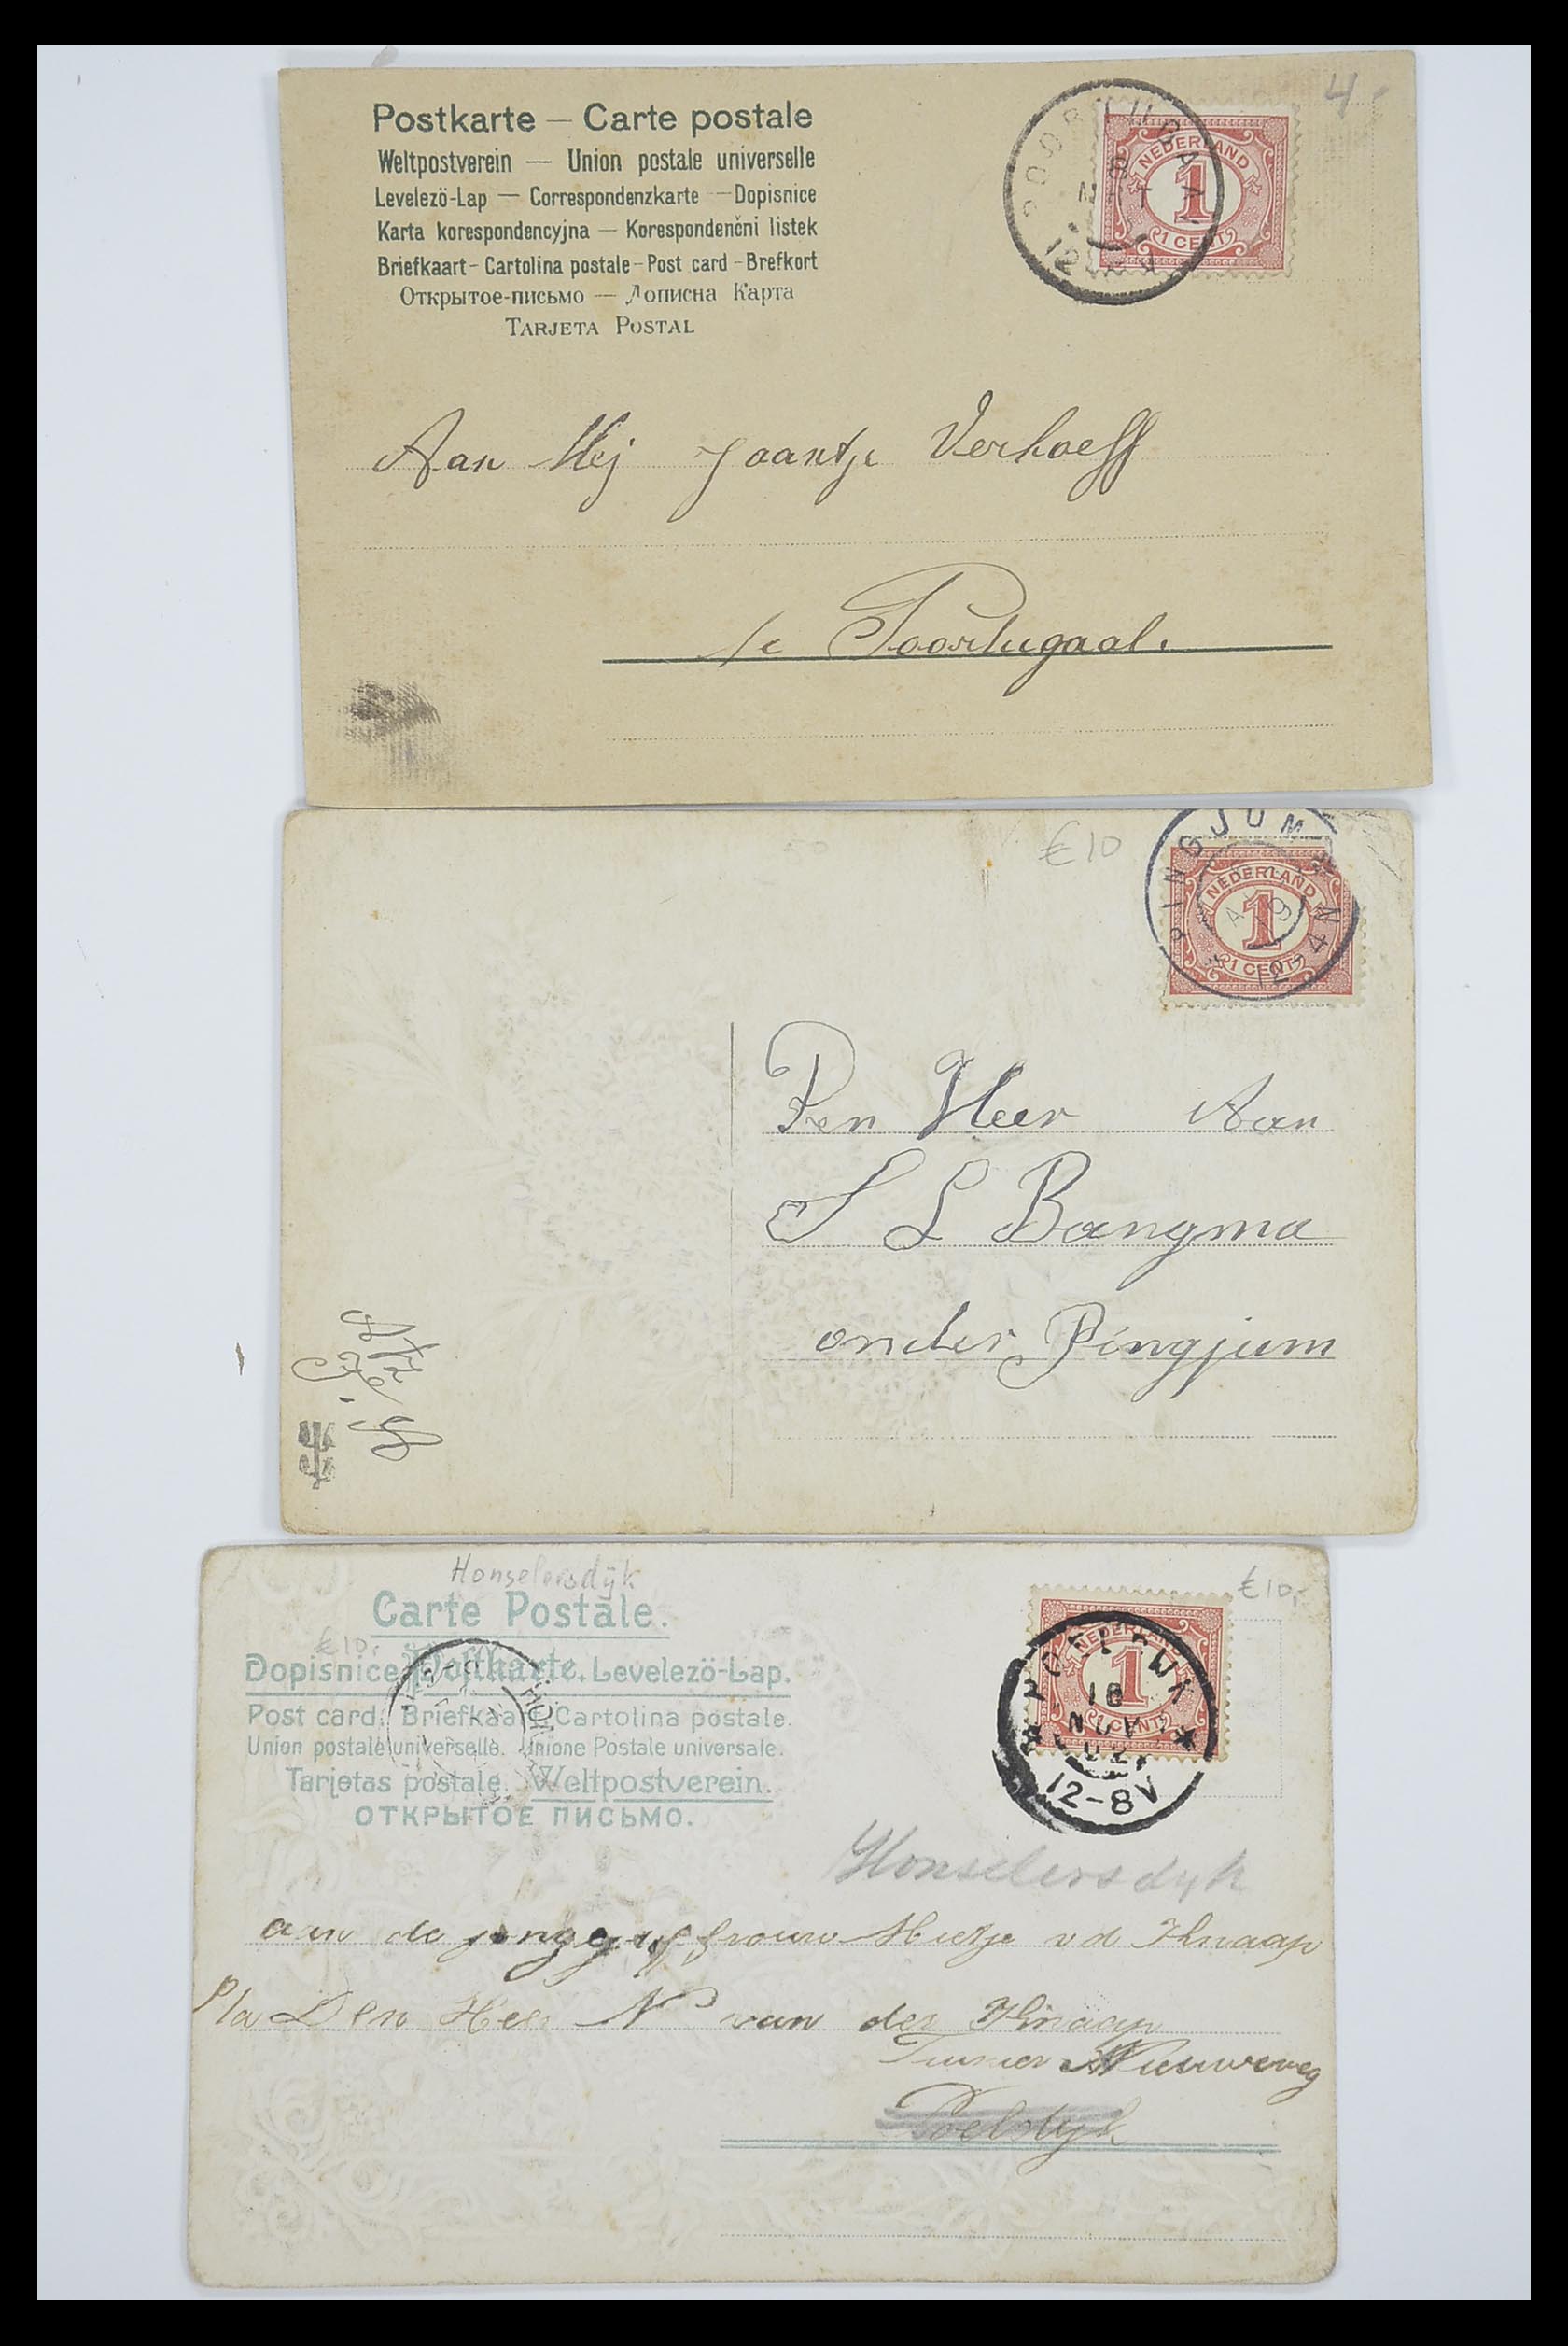 Postkarte — Carte postale
4-
Weltpostverein — Union postale universelle
Levelezö-Lap — Correspondenzkarte — Dopisnice
Karta korespondencyjna — Korespondenčni listek
Briefkaart - Cartolina postale - Post card - Brefkort
Открытое-письмо — Дописна Карта
TARJETA POSTAL
NEDERLAND
1
1 CENT
12
Aan Mej Jaantje Verhoeff
te Poortugaal.
€10
PINGJUM
12-4N
NEDERLAND
1
1 CENT
Den Heer Aan
S L Bangma
onder Pingjum
Honselersdijk
€10,-
Carte Postale.
€10,-
Dopisnice Postkarte. Levelezö-Lap.
Post card. Briefkaart Cartolina postale.
Union postale universelle. Unione Postale universale.
Tarjetas postale. Weltpostverein.
ОТКРЫТОЕ ПИСЬМО.
NEDERLAND
1
1 CENT
18
NOV
02
12-8V
Honselersdyk
aan de jonge juffrouw v d Knaap
P/a Den Heer N van der Knaap
Tuinier Nieuweweg
Poeldyk